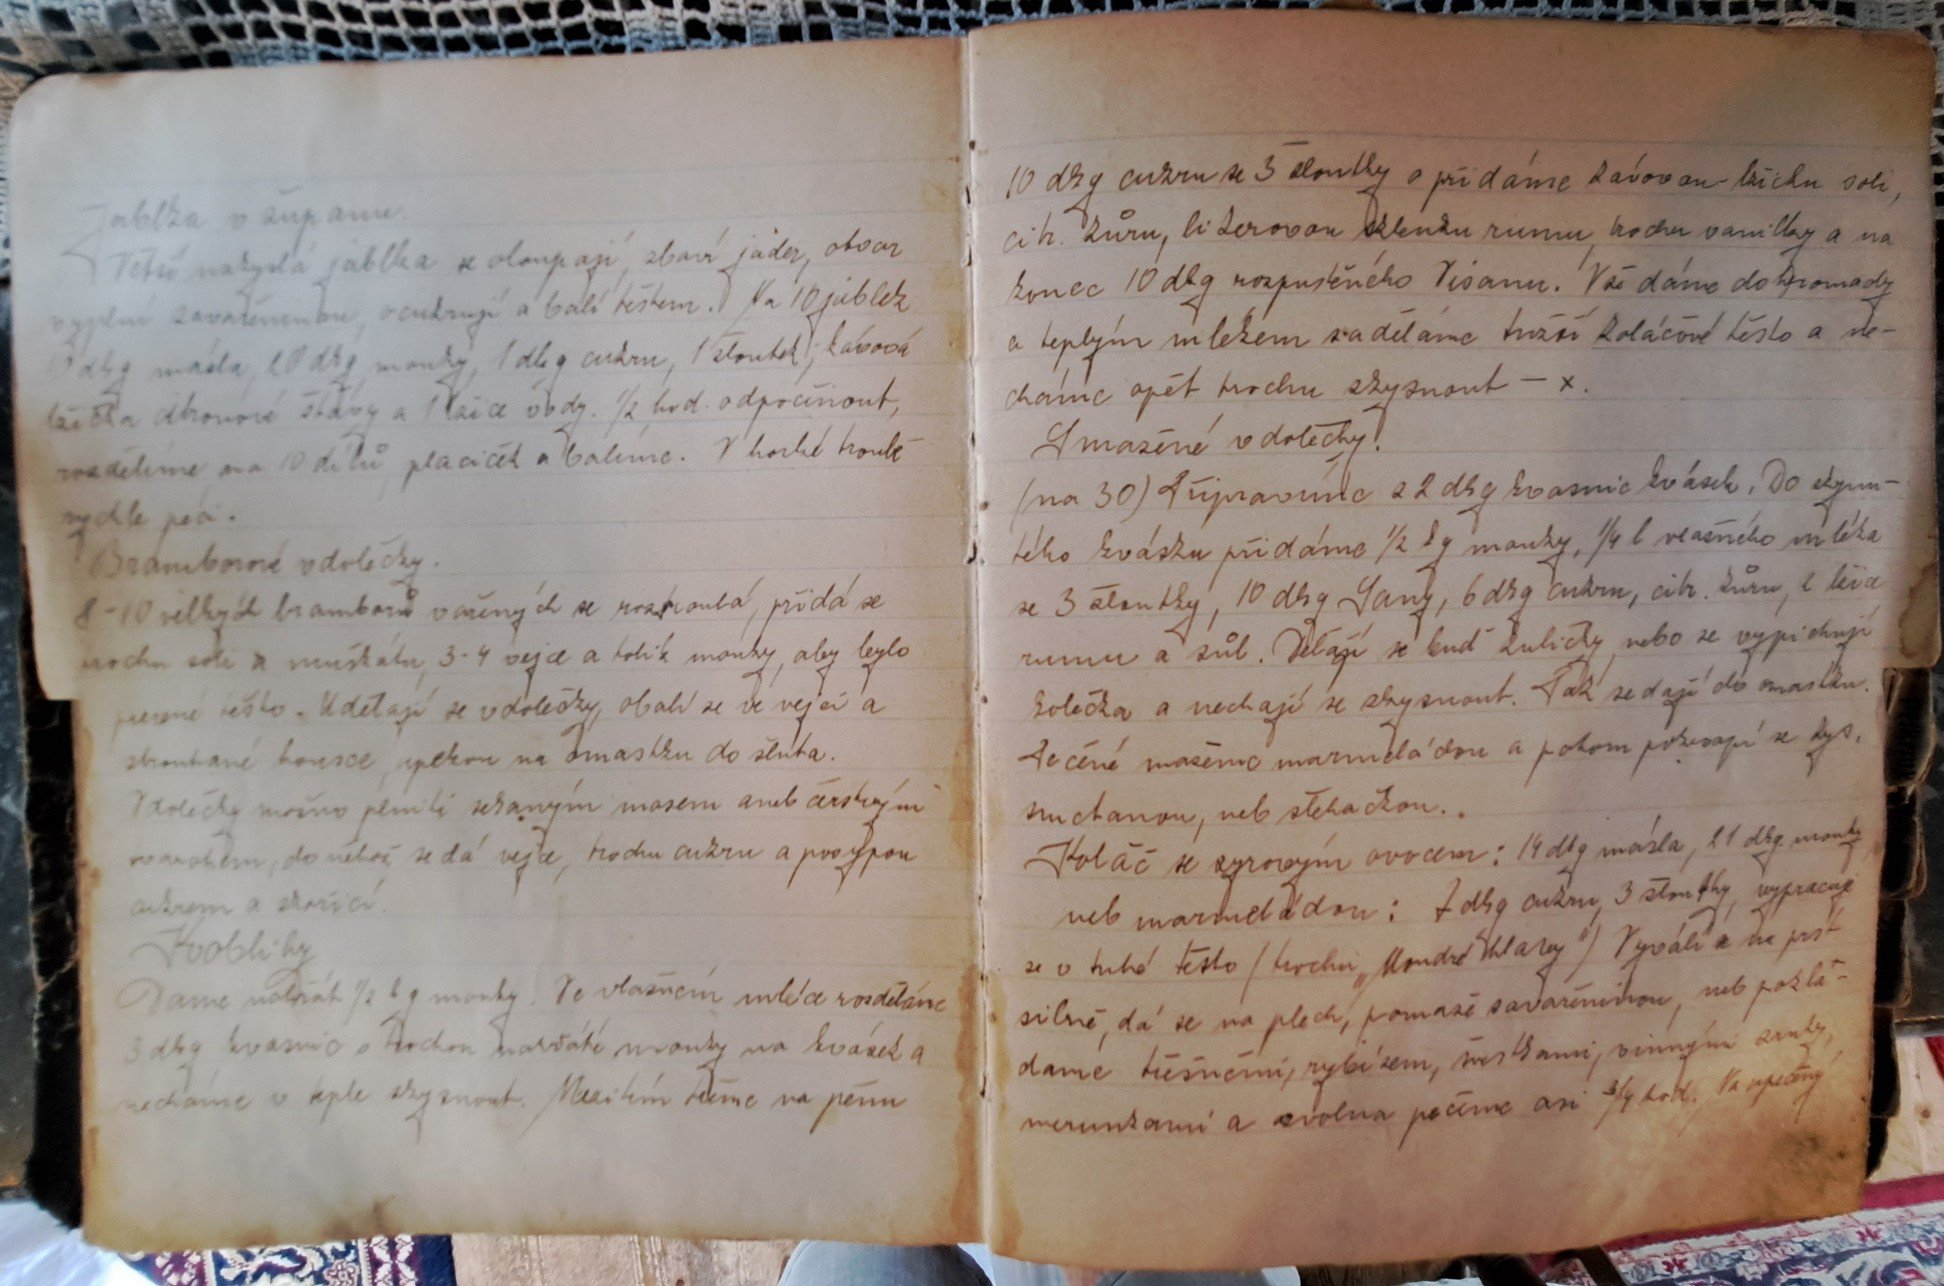 Jablka v županu.
Větší nakyslá jablka se oloupají, zbaví jader, otvor
vyplní zavařeninou, ocukrují a balí těstem. Na 10 jablek
10 dkg másla, 20 dkg mouky, 1 dkg cukru, 1 žloutek, kávová
lžička citronové šťávy a 1 lžíce vody. 1/2 hod. odpočinout,
rozdělíme na 10 dílů, placiček a balíme. V horké troubě
rychle péci.
Bramborové vdolečky.
8-10 velkých bramborů vařených se rozstrouhá, přidá se
trochu soli a muškátu, 3-4 vejce a tolik mouky, aby bylo
pevné těsto. Udělají se vdolečky, obalí se ve vejci a
strouhané housce, upekou na omastku do žluta.
Vdolečky možno plniti sekaným masem aneb čerstvým
tvarohem, do něhož se dá vejce, trochu cukru a posypou
cukrem a skořicí.
Koblihy
Dáme nahřát 1/2 kg mouky. Ve vlažném mléce rozděláme
3 dkg kvasnic s trochou nahřáté mouky na kvásek a
necháme v teple skysnout. Mezitím třeme na pěnu
10 dkg cukru se 3 žloutky a přidáme kávovou lžičku soli,
citr. kůru, likerovou sklenku rumu, trochu vanilky a na
konec 10 dkg rozpuštěného Visanu. Vše dáme dohromady
a teplým mlékem zaděláme tužší koláčové těsto a ne-
cháme opět trochu skysnout – x.
Smažené vdolečky.
(na 30) Připravíme z 2 dkg kvasnic kvásek. Do skynu-
tého kvásku přidáme 1/2 kg mouky, 1/4 l vlažného mléka
se 3 žloutky, 10 dkg Sany, 6 dkg cukru, citr. kůru, 2 lžíce
rumu a sůl. Dělají se buď kuličky nebo se vypichují
kolečka a nechají se skysnout. Pak se dají do omastku.
Pečené mažeme marmeládou a potom polévají se kys.
smetanou, neb šlehačkou.
Koláč se syrovým ovocem: 14 dkg másla, 21 dkg mouky
neb marmeládou: 7 dkg cukru, 3 žloutky, vypracuje
se v tuhé těsto (trochu "Moudré hlavy") Vyválí se na prst
silně, dá se na plech, pomaže zavařeninou, neb poklá-
dáme třešněmi, rybízem, švestkami, vinnými zrnky,
meruňkami a zvolna pečeme asi 3/4 hod. Na upečený